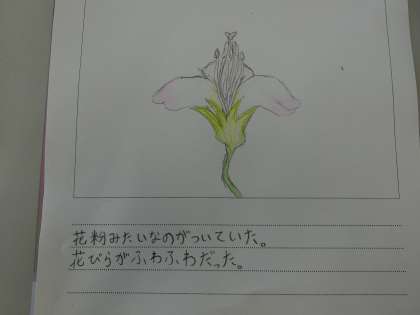 花粉みたいなのがついていた。
花びらがふわふわだった。